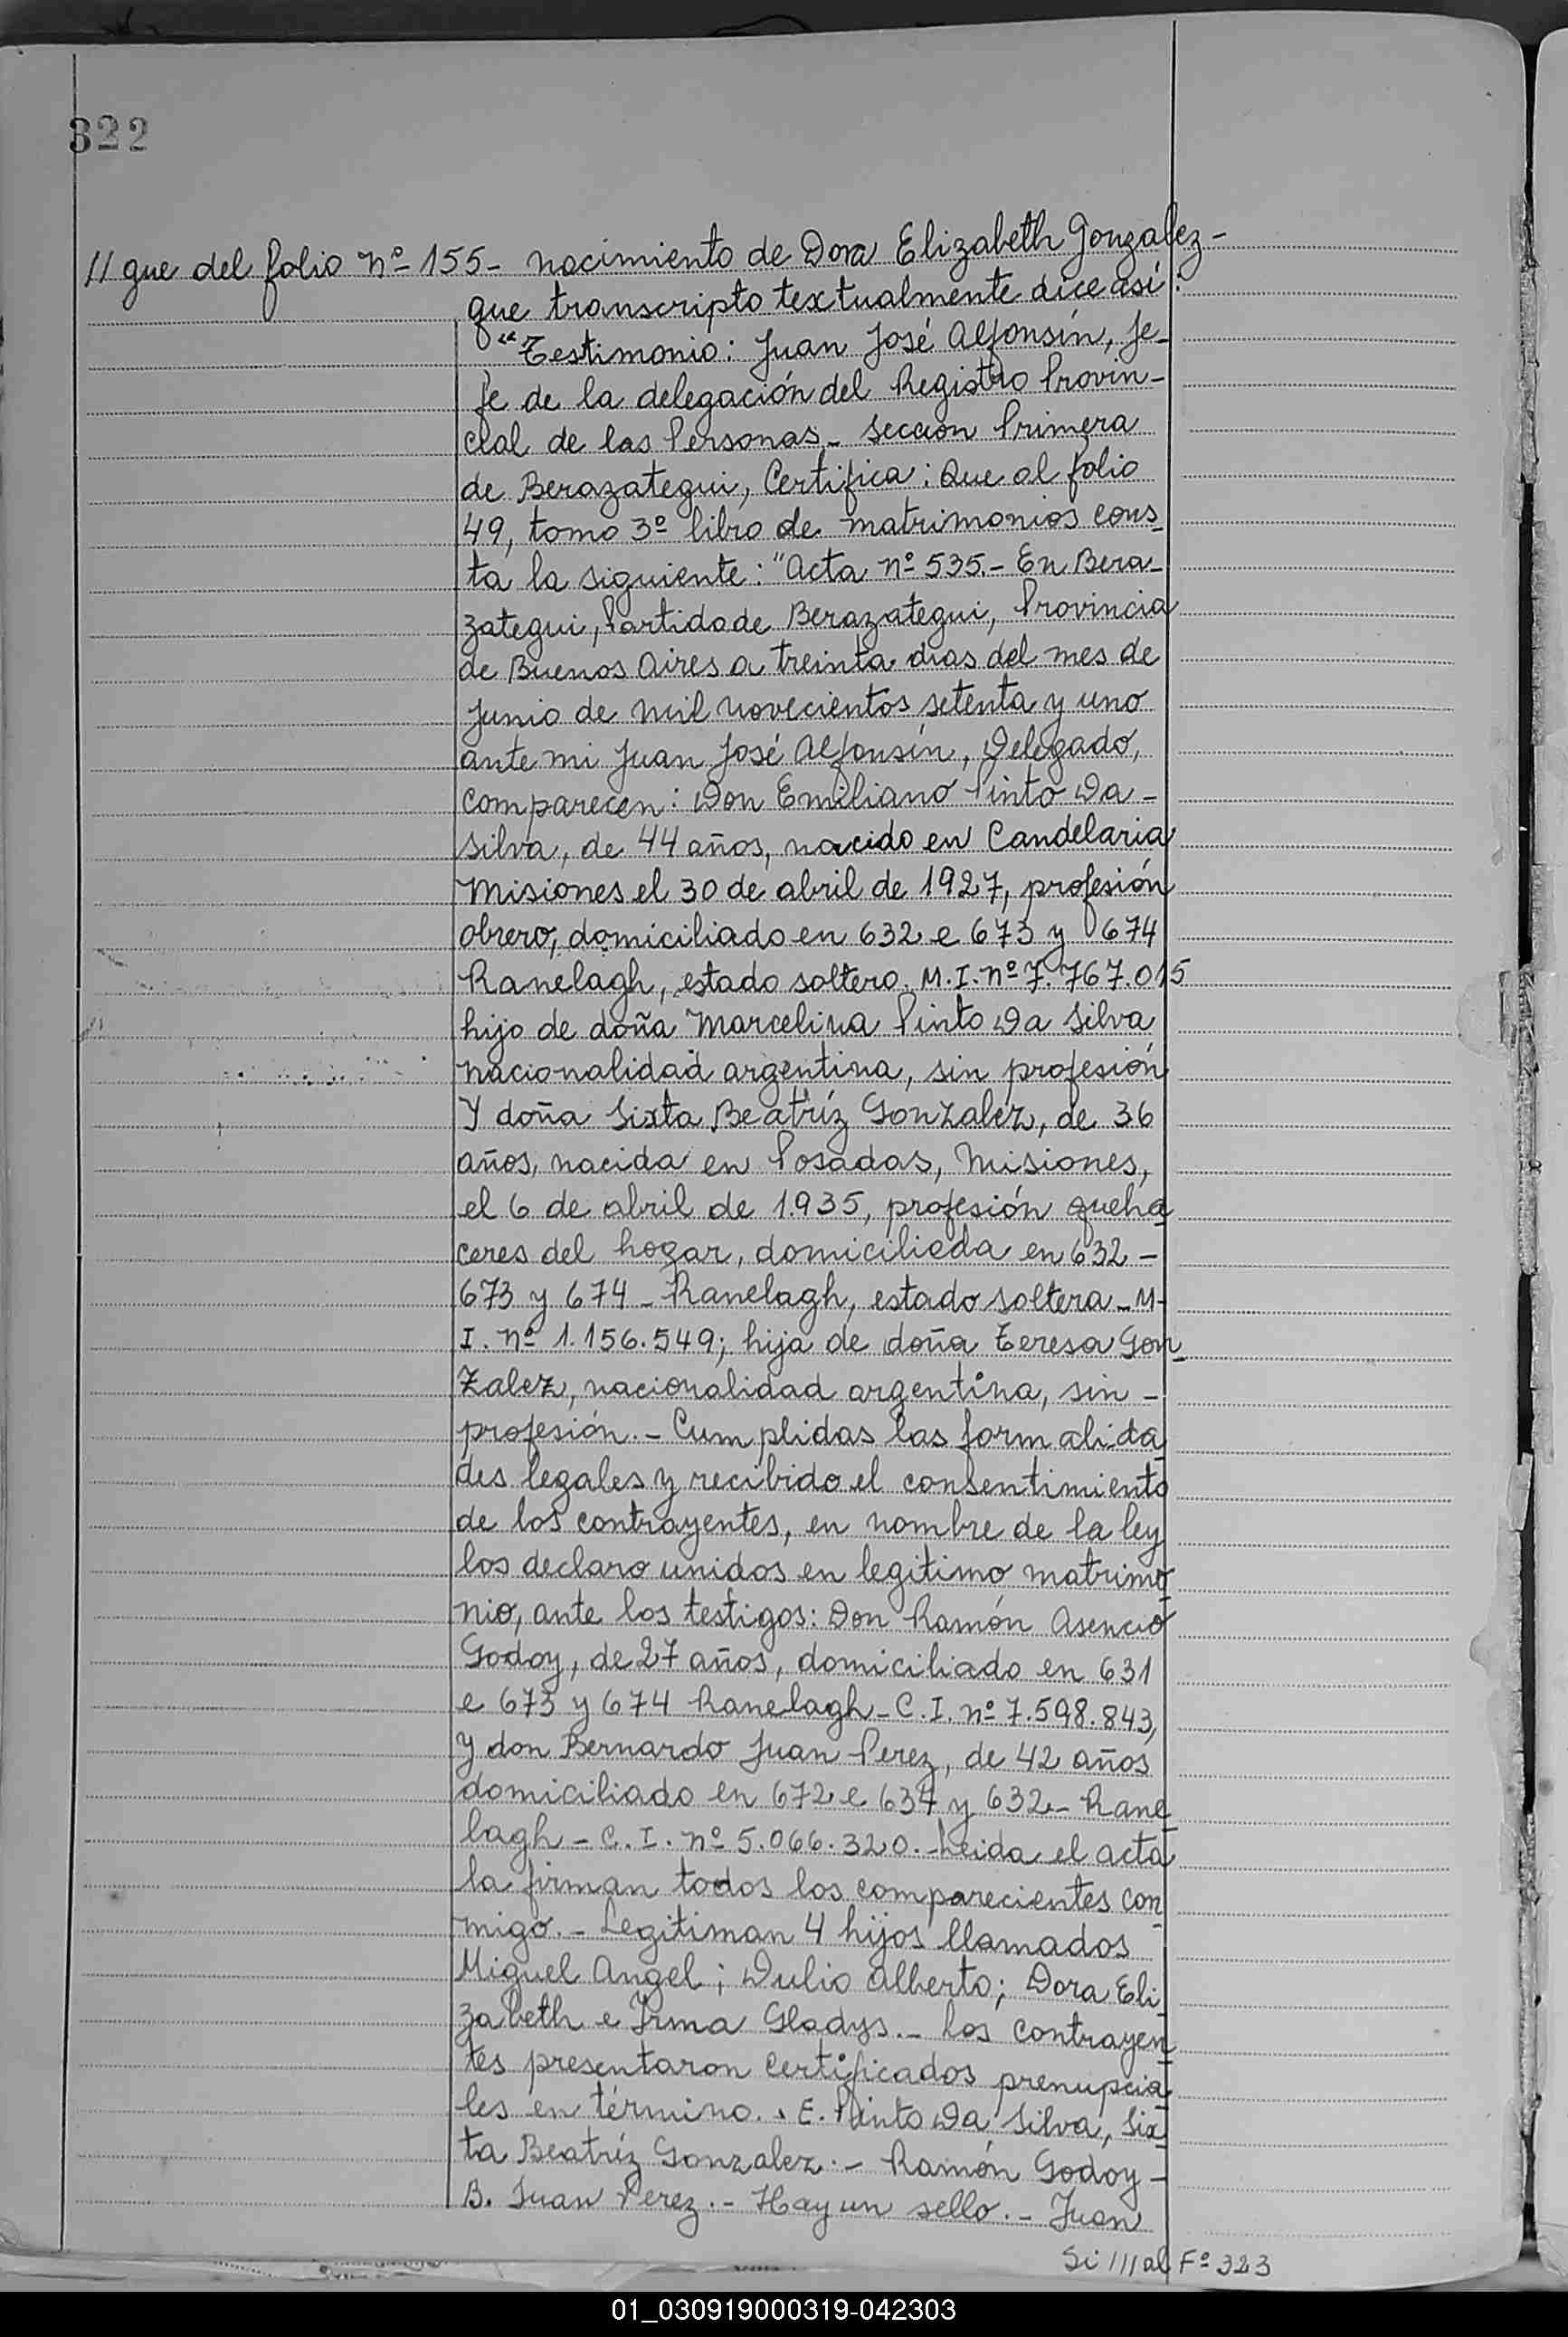 322
// gue del folio Nº 155 - nacimiento de Dora Elizabeth Gonzalez -
que transcripto textualmente dice así:
"Testimonio: Juan José Alfonsín, Je-
fe de la delegación del Registro Provin-
cial de las Personas - Sección Primera
de Berazategui, Certifica: Que al folio
49, tomo 3º libro de matrimonios cons-
ta la siguiente: "Acta nº 535.- En Bera-
zategui, Partido de Berazategui, Provincia
de Buenos Aires a treinta dias del mes de
Junio de mil novecientos setenta y uno
ante mi Juan José Alfonsín, Delegado,
comparecen: Don Emiliano Pinto Da -
Silva, de 44 años, nacido en Candelaria
Misiones el 30 de abril de 1927, profesión
obrero, domiciliado en 632 e 673 y 674
Ranelagh, estado soltero. M.I. nº 7.767.015
hijo de doña Marcelina Pinto Da Silva
nacionalidad argentina, sin profesión
Y doña Sixta Beatríz Gonzalez, de 36
años, nacida en Posadas, Misiones,
el 6 de abril de 1.935, profesión queha
ceres del hogar, domiciliada en 632 -
673 y 674 - Ranelagh, estado soltera - M-
I. nº 1.156.549; hija de doña Teresa Gon-
zalez, nacionalidad argentina, sin -
profesión. - Cumplidas las formalida
des legales y recibido el consentimiento
de los contrayentes, en nombre de la ley
los declaro unidos en legitimo matrimo-
nio, ante los testigos: Don Ramón Asencio
Godoy, de 27 años, domiciliado en 631
e 673 y 674 Ranelagh - C.I. nº 7.598.843,
Y don Bernardo Juan Perez, de 42 años
domiciliado en 672 e 634 y 632 - Rane
lagh - C.I. nº 5.066.320. - Leida el acta
la firman todos los comparecientes con-
migo. - Legitiman 4 hijos llamados
Miguel Angel; Dulio Alberto; Dora Eli-
zabeth e Irma Gladys. - Los contrayen-
tes presentaron certificados prenupcia-
les en término. - E. Pinto Da Silva, Six-
ta Beatríz Gonzalez. - Ramón Godoy -
B. Juan Perez. - Hay un sello. - Juan
Si /// al Fº 323
01_030919000319-042303